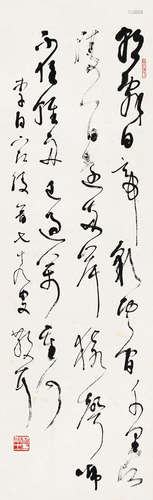 朝辭白帝彩雲間千里江
陵一日還兩岸猿聲啼
不住輕舟已過萬重山
李白